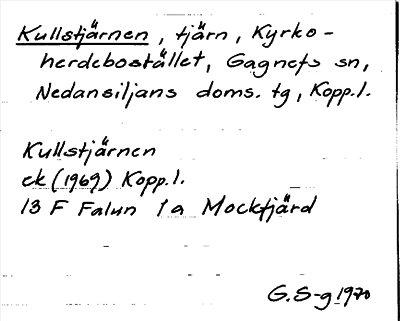 Kullstjärnen, tjärn, Kyrko-
herdebostället, Gagnefs sn,
Nedansiljans doms. tg, Kopp.l.
Kullstjärnen
ek (1969) Kopp.l.
13 F Falun 1a Mockfjärd
G.S-g 1970